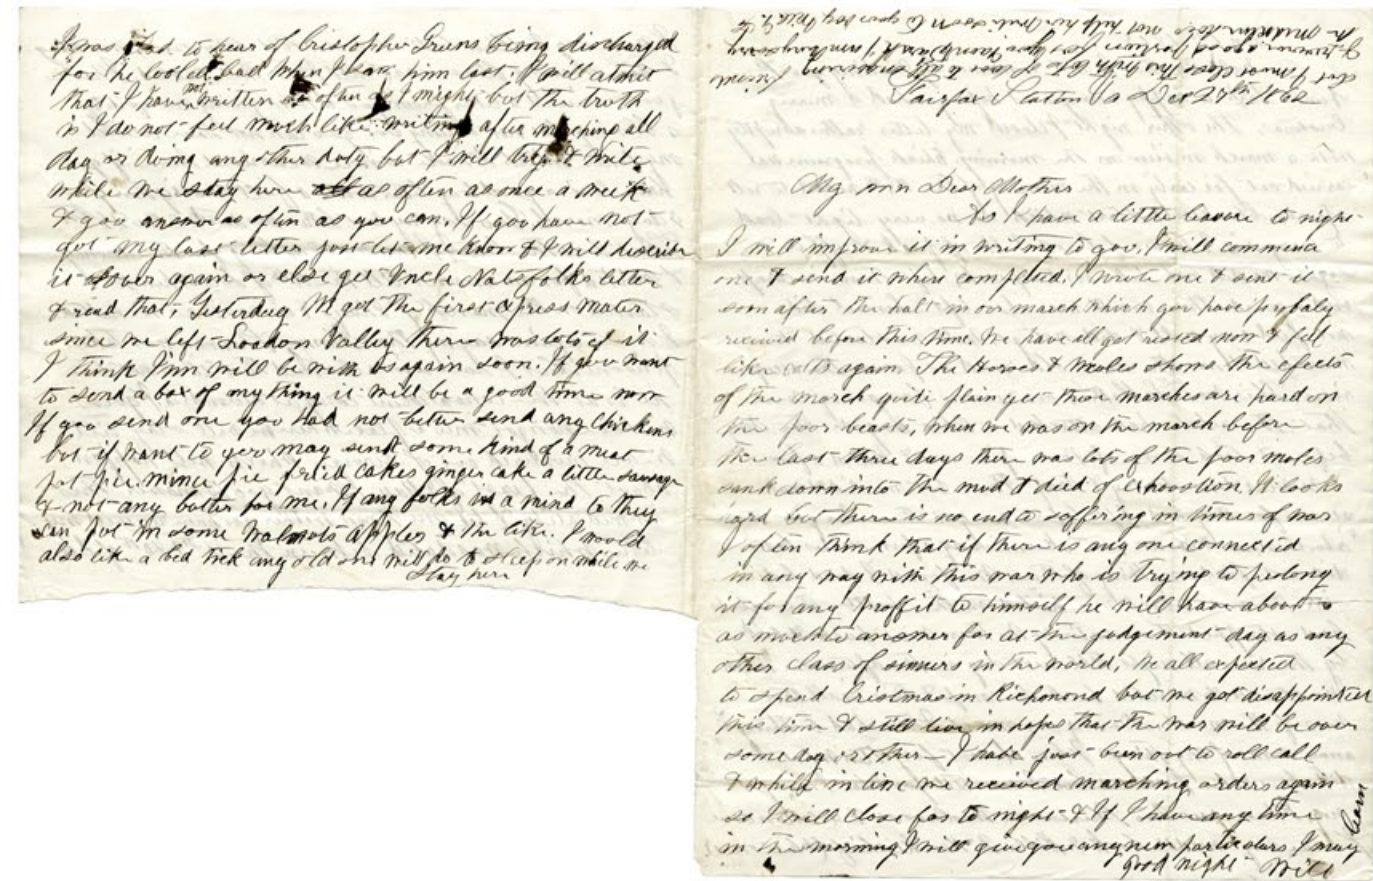 I was glad to hear of Cristopher Greens being discharged
for he looked bad when I saw him last. I will admit
that I have not written as often as I might but the truth
is I do not feel much like writing after marching all
day or doing any other duty but I will try & write
while we stay here as often as once a week
& you answer as often as you can. If you have not
got my last letter just let me know & I will describe
it over again or else get Uncle Nats folks letter
& read that, Yesterday We got the first express mater
since we left Loudon Valley there was lots of it
I think will be with us again soon. If you want
to send a box of any thing it will be a good time now
If you send one you had not better send any Chickens
but if want to you may send some kind of a meat
pot pie mince pie fried cakes ginger cake a little sausage
& not any butter for me. If any folks is a mind to they
can put in some Walnuts apples & the like. I would
also like a bed tick any old one will do to sleep on while we
stay here
But I must close this with lots of love to all enquiring friends
Fairfax Station Va Dec 27th 1862
My own Dear Mother
As I have a little leasure to night
I will improve it in writing to you, I will commence
one & send it where completed. I wrote one & sent it
soon after the halt in our march which you have probaly
recieved before this time. We have all got rested now & feel
like colts again. The Horses & Meules shows the efects
of the march quite plain yet these marches are hard on
the poor beasts, when we was on the march before
the last three days there was lots of the poor mules
sunk down into the mud & died of exhoostion. It looks
hard but there is no end to suffering in times of war
I often think that if there is any one connected
in any way with this war who is trying to prolong
it for any proffit to himself he will have about
as much to answer for at the judgement day as any
other class of sinners in the world, We all expected
to spend Cristmas in Richmond but we got disappointed
this time & still live in hopes that the war will be over
some day or other — I have just been out to roll call
& while in line we recieved marching orders again
so I will close for to night & If I have any time
in the morning I will give you any new particulars I may
learn
good night Will